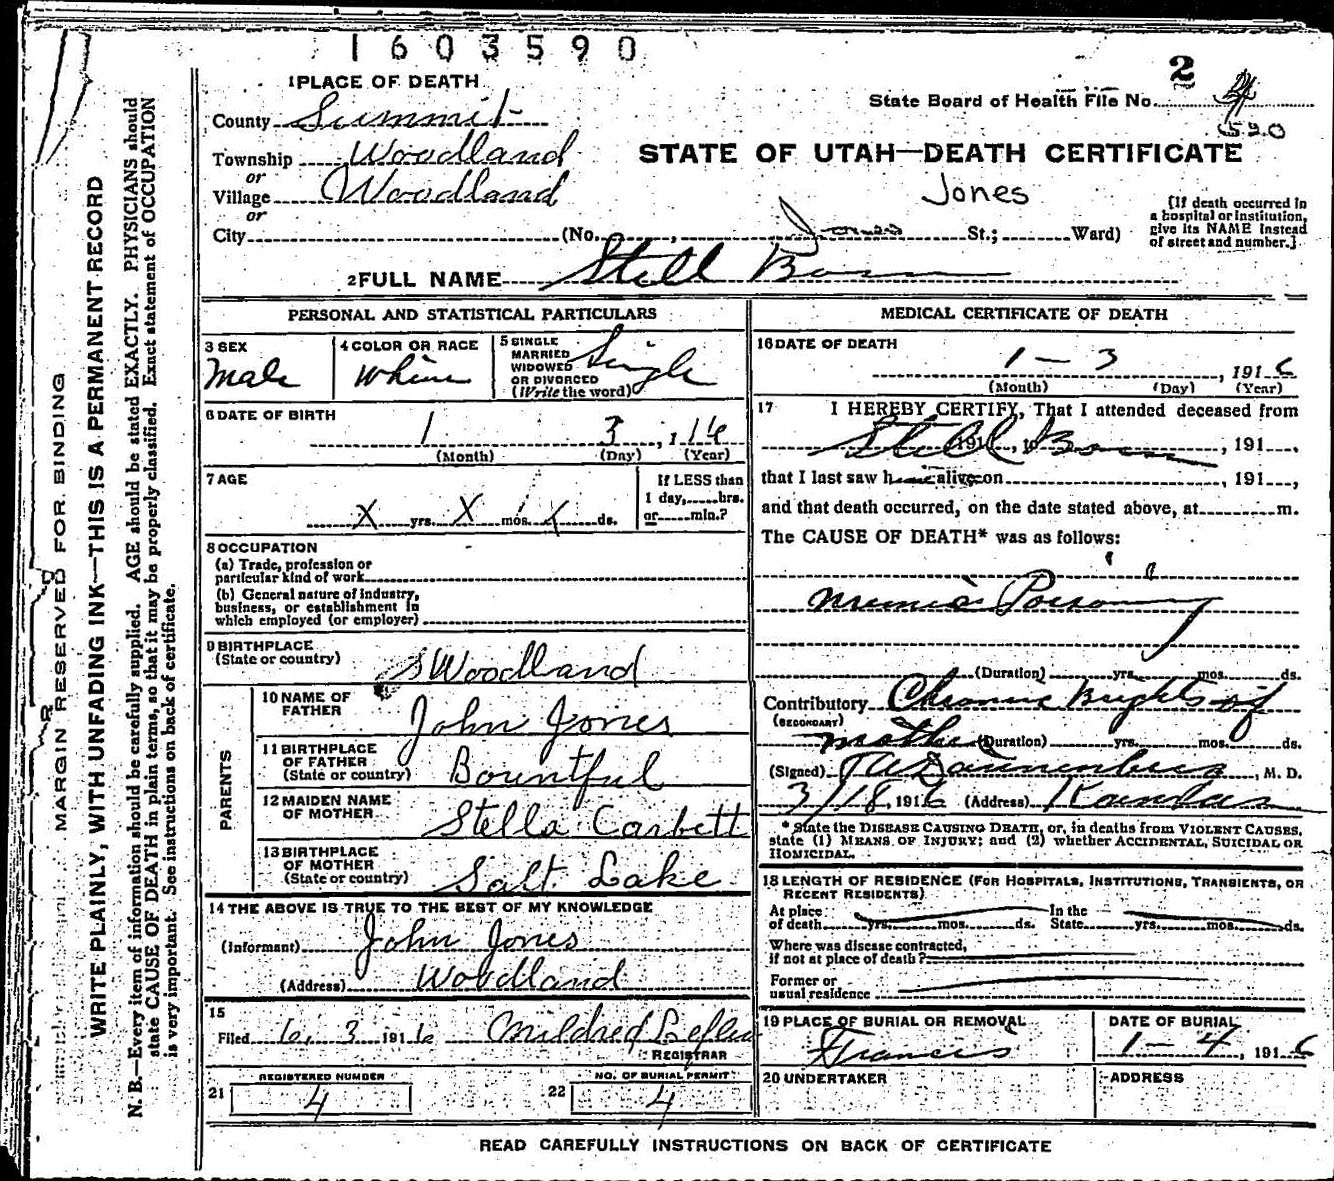 1603590
2
1 PLACE OF DEATH
State Board of Health File No. 4
520
County Summit
Township Woodland
or
STATE OF UTAH—DEATH CERTIFICATE
Village Woodland
or
Jones
[If death occurred in a hospital or institution, give its NAME instead of street and number.]
City (No. , Jones St.; Ward)
2 FULL NAME Still Born
PERSONAL AND STATISTICAL PARTICULARS
3 SEX
Male
4 COLOR OR RACE
White
5 SINGLE MARRIED WIDOWED OR DIVORCED (Write the word)
Single
6 DATE OF BIRTH
1 3, 116
(Month) (Day) (Year)
7 AGE
X yrs. X mos. X ds.
If LESS than 1 day, hrs. or min.?
8 OCCUPATION
(a) Trade, profession or particular kind of work
(b) General nature of industry, business, or establishment in which employed (or employer)
9 BIRTHPLACE
(State or country) Woodland
PARENTS
10 NAME OF FATHER John Jones
11 BIRTHPLACE OF FATHER (State or country) Bountful
12 MAIDEN NAME OF MOTHER Stella Carbett
13 BIRTHPLACE OF MOTHER (State or country) Salt Lake
14 THE ABOVE IS TRUE TO THE BEST OF MY KNOWLEDGE
(Informant) John Jones
(Address) Woodland
15
Filed 6, 3 1916 Mildred
REGISTRAR
REGISTERED NUMBER
21 4
NO. OF BURIAL PERMIT
22 4
MEDICAL CERTIFICATE OF DEATH
16 DATE OF DEATH
1 - 3, 1916
(Month) (Day) (Year)
17 I HEREBY CERTIFY, That I attended deceased from
Still Born 191, to , 191,
that I last saw h alive on , 191,
and that death occurred, on the date stated above, at m.
The CAUSE OF DEATH* was as follows:
Uremic Poisoning
(Duration) yrs. mos. ds.
Contributory Chronic Brights of
(SECONDARY)
mother (Duration) yrs. mos. ds.
(Signed) , M. D.
3/18, 1916 (Address) Kamas
* State the DISEASE CAUSING DEATH, or, in deaths from VIOLENT CAUSES, state (1) MEANS OF INJURY; and (2) whether ACCIDENTAL, SUICIDAL OR HOMICIDAL.
18 LENGTH OF RESIDENCE (FOR HOSPITALS, INSTITUTIONS, TRANSIENTS, OR RECENT RESIDENTS)
At place of death yrs. mos. ds. In the State yrs. mos. ds.
Where was disease contracted, if not at place of death?
Former or usual residence
19 PLACE OF BURIAL OR REMOVAL
Francis
DATE OF BURIAL
1 - 4, 1916
20 UNDERTAKER
ADDRESS
READ CAREFULLY INSTRUCTIONS ON BACK OF CERTIFICATE
MARGIN RESERVED FOR BINDING
WRITE PLAINLY, WITH UNFADING INK—THIS IS A PERMANENT RECORD
N. B.—Every item of information should be carefully supplied. AGE should be stated EXACTLY. PHYSICIANS should
state CAUSE OF DEATH in plain terms, so that it may be properly classified. Exact statement of OCCUPATION
is very important. See instructions on back of certificate.